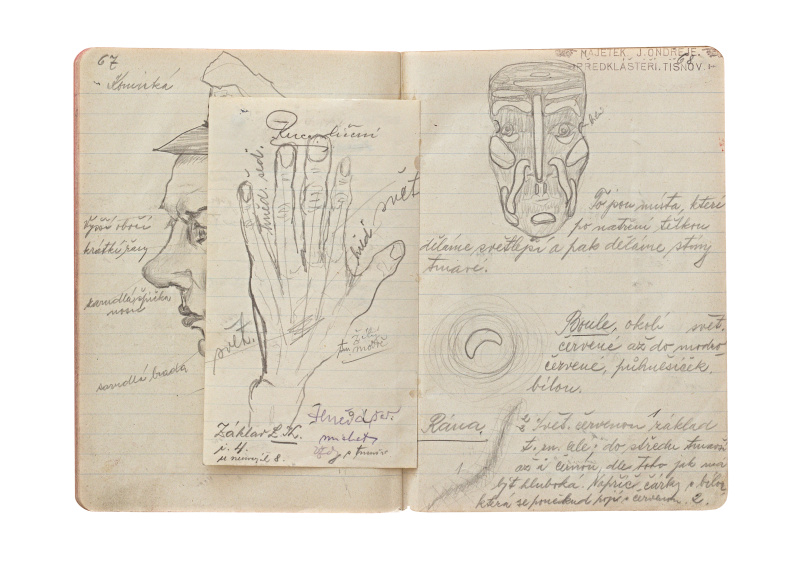 67
Komická
Vyšší obočí
krátké řasy
zarudlá špička
nosu
zarudlá brada
hněd. šed.
hněd. svět
svět.
tm. modře
Základ L. K.
č. 4.
u nemoci 8.
Hněd
MAJETEK J. ONDŘEJE.
PŘEDKLÁŠTEŘÍ. TIŠNOV.
68
To jsou místa, která
po natření tělkou
děláme světlejší a pak děláme stíny
tmavé.
Boule, okolí svět.
červené až do modro
červené, půlměsíček
bílou.
Rána.
Svět. červenou základ
do středu tmavší
až i černou, dle toho jak má
být hluboká. Napříč čárky s bílou
která se poněkud popí s červenou. 2.
1